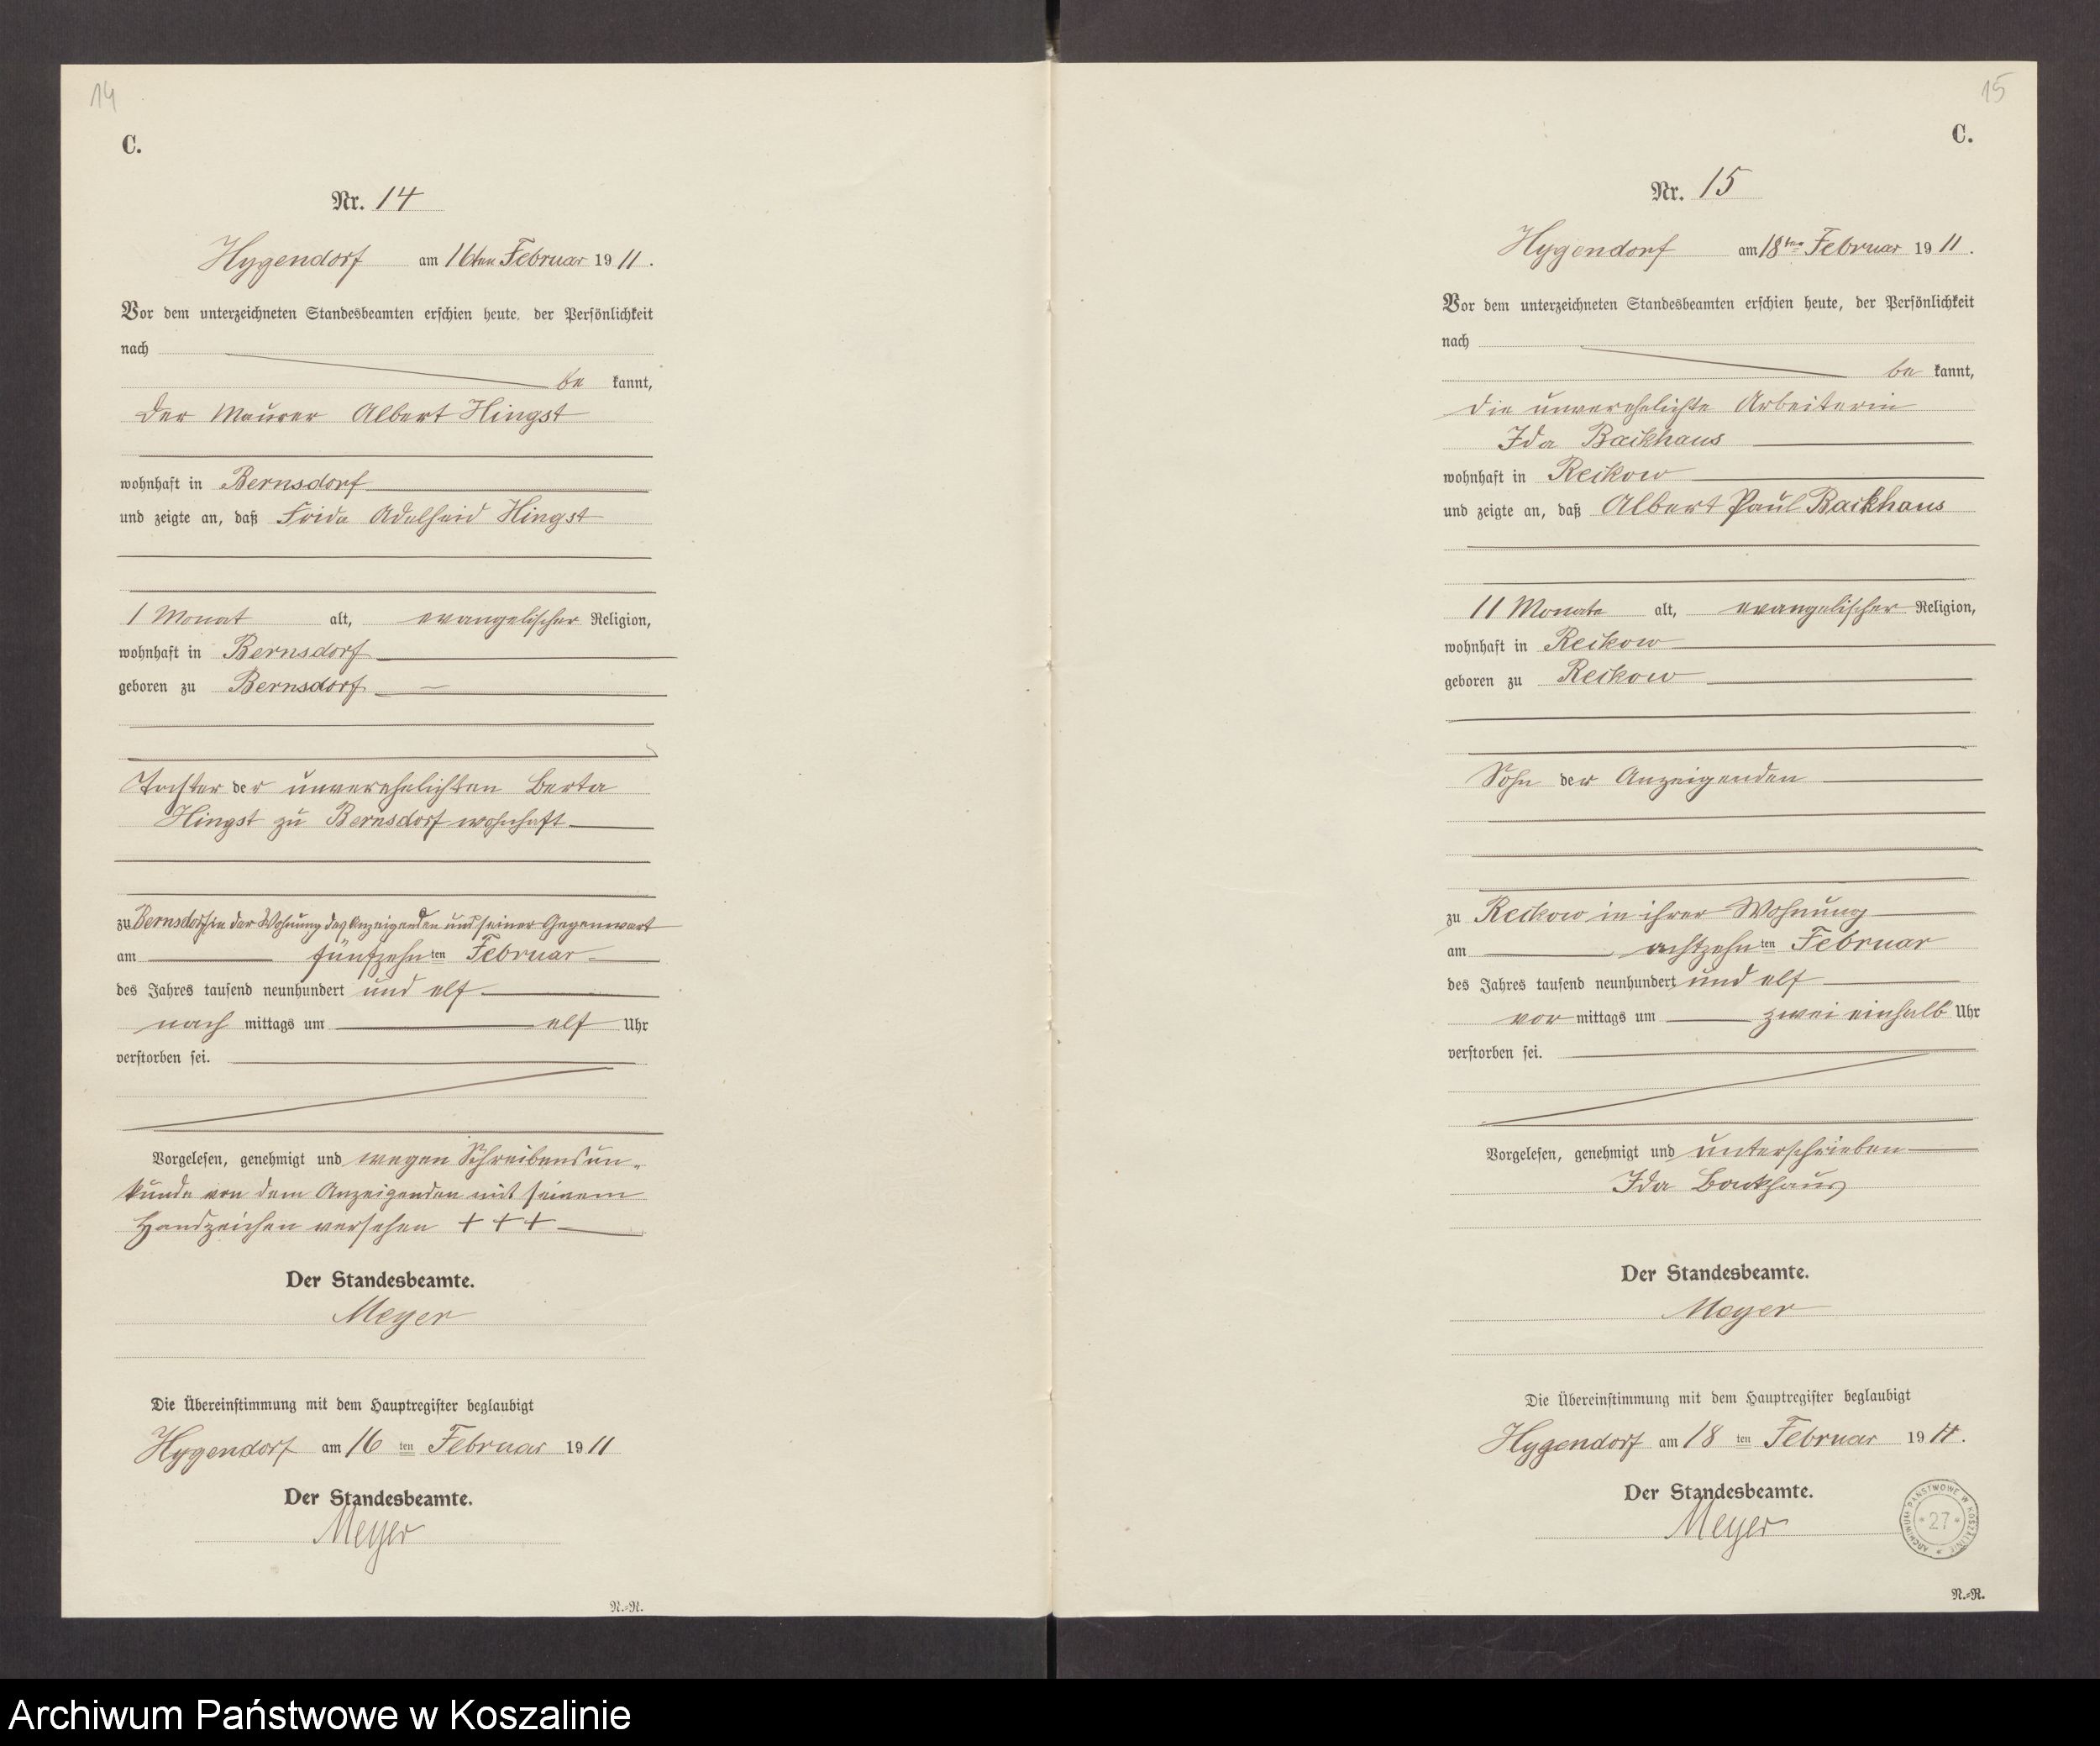 14
C.
Nr. 14
Hygendorf am 16ten Februar 1911.
Vor dem unterzeichneten Standesbeamten erschien heute, der Persönlichkeit
nach
be kannt,
der Maurer Albert Hingst
wohnhaft in Bernsdorf
und zeigte an, daß Frida Adelheid Hingst
1 Monat alt, evangelischer Religion,
wohnhaft in Bernsdorf
geboren zu Bernsdorf
Tochter der unverehelichten Berta
Hingst zu Bernsdorf wohnhaft
zu Bernsdorf in der Wohnung des Anzeigenden und seiner Gegenwart
am fünfzehnten Februar
des Jahres tausend neunhundert und elf
nach mittags um elf Uhr
verstorben sei.
Vorgelesen, genehmigt und wegen Schreibensun-
kunde von dem Anzeigenden mit seinem
Handzeichen versehen + + +
Der Standesbeamte.
Meyer
Die Übereinstimmung mit dem Hauptregister beglaubigt
Hygendorf am 16 ten Februar 1911
Der Standesbeamte.
Meyer
N.=R.
15
C.
Nr. 15
Hygendorf am 18ten Februar 1911.
Vor dem unterzeichneten Standesbeamten erschien heute, der Persönlichkeit
nach
be kannt,
die unverehelichte Arbeiterin
Ida Backhaus
wohnhaft in Reckow
und zeigte an, daß Albert Paul Backhaus
11 Monate alt, evangelischer Religion,
wohnhaft in Reckow
geboren zu Reckow
Sohn der Anzeigenden
zu Reckow in ihrer Wohnung
am achtzehnten Februar
des Jahres tausend neunhundert und elf
vor mittags um zwei einhalb Uhr
verstorben sei.
Vorgelesen, genehmigt und unterschrieben
Ida Backhaus
Der Standesbeamte.
Meyer
Die Übereinstimmung mit dem Hauptregister beglaubigt
Hygendorf am 18 ten Februar 1911.
Der Standesbeamte.
Meyer
ARCHIWUM PAŃSTWOWE W KOSZALINIE
* 27 *
N.=R.
Archiwum Państwowe w Koszalinie